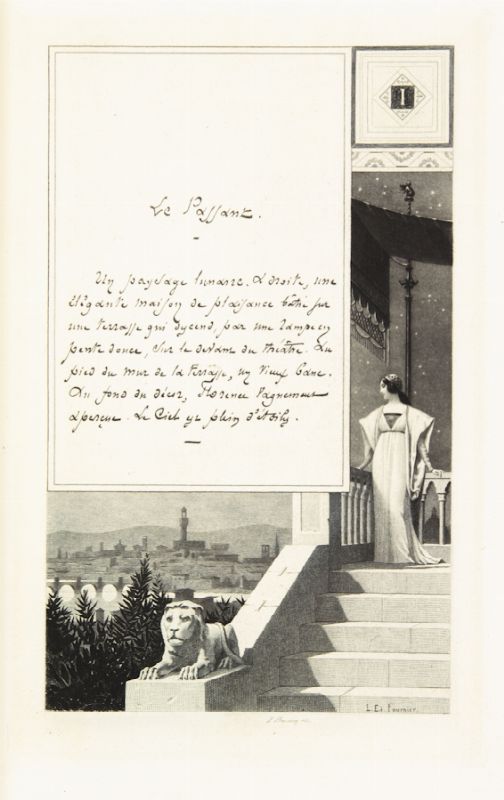 I
Le Passant.
Un paysage lunaire. A droite, une
élégante maison de plaisance bâtie sur
une terrasse qui descend, par une rampe en
pente douce, sur le devant du théâtre. Au
pied du mur de la terrasse, un vieux banc.
Au fond du décor, Florence vaguement
aperçue. Le Ciel est plein d'étoiles.
L. Ed. Fournier.